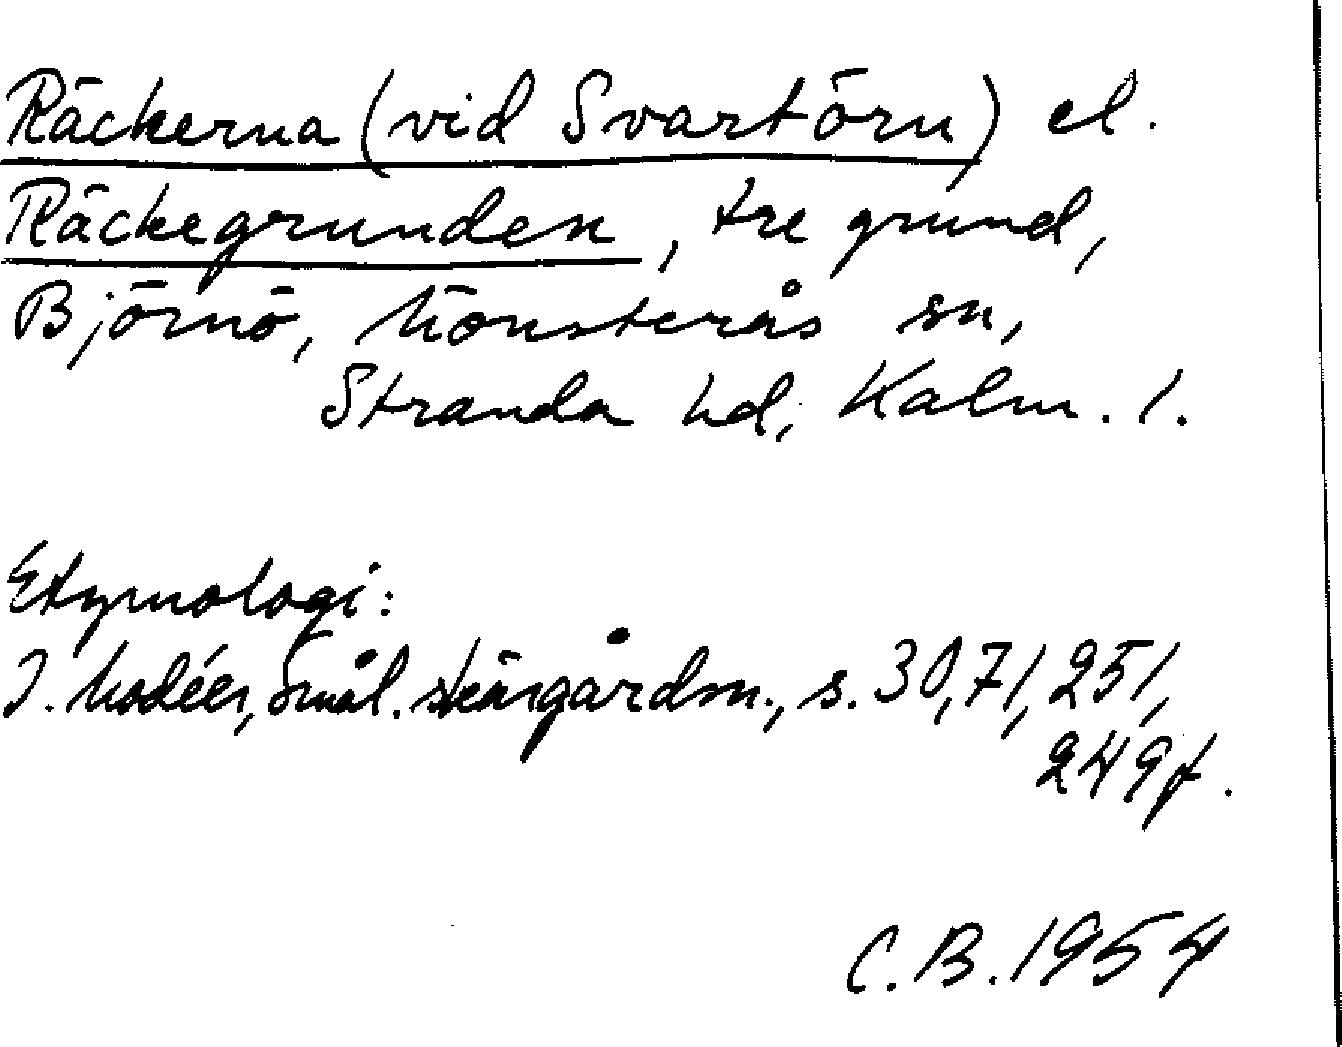 Räckerna (vid Svartörn) el.
Räckegrunden, tre grund,
Björnö, Mönsterås sn,
Stranda hd, Kalm. l.
Etymologi:
I. Modéer, Smål. skärgårdsn., s. 30, 71, 251,
249f.
C. B. 1954